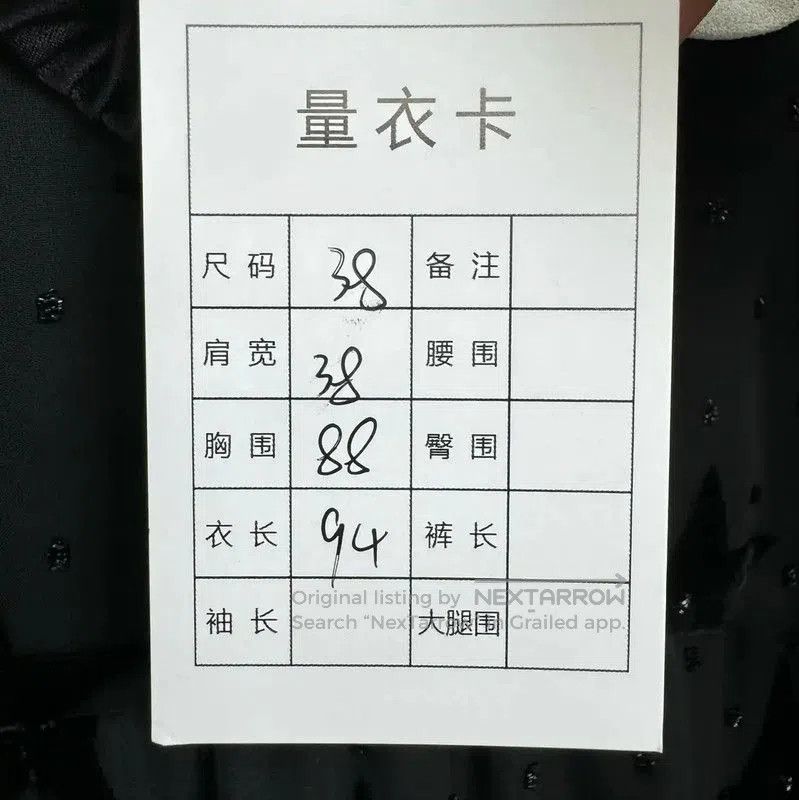 量衣卡
尺码 38 备注
肩宽 38 腰围
胸围 88 臀围
衣长 94 裤长
Original listing by NEXTARROW
袖长 大腿围
Search “NexTarrow” on Grailed app.